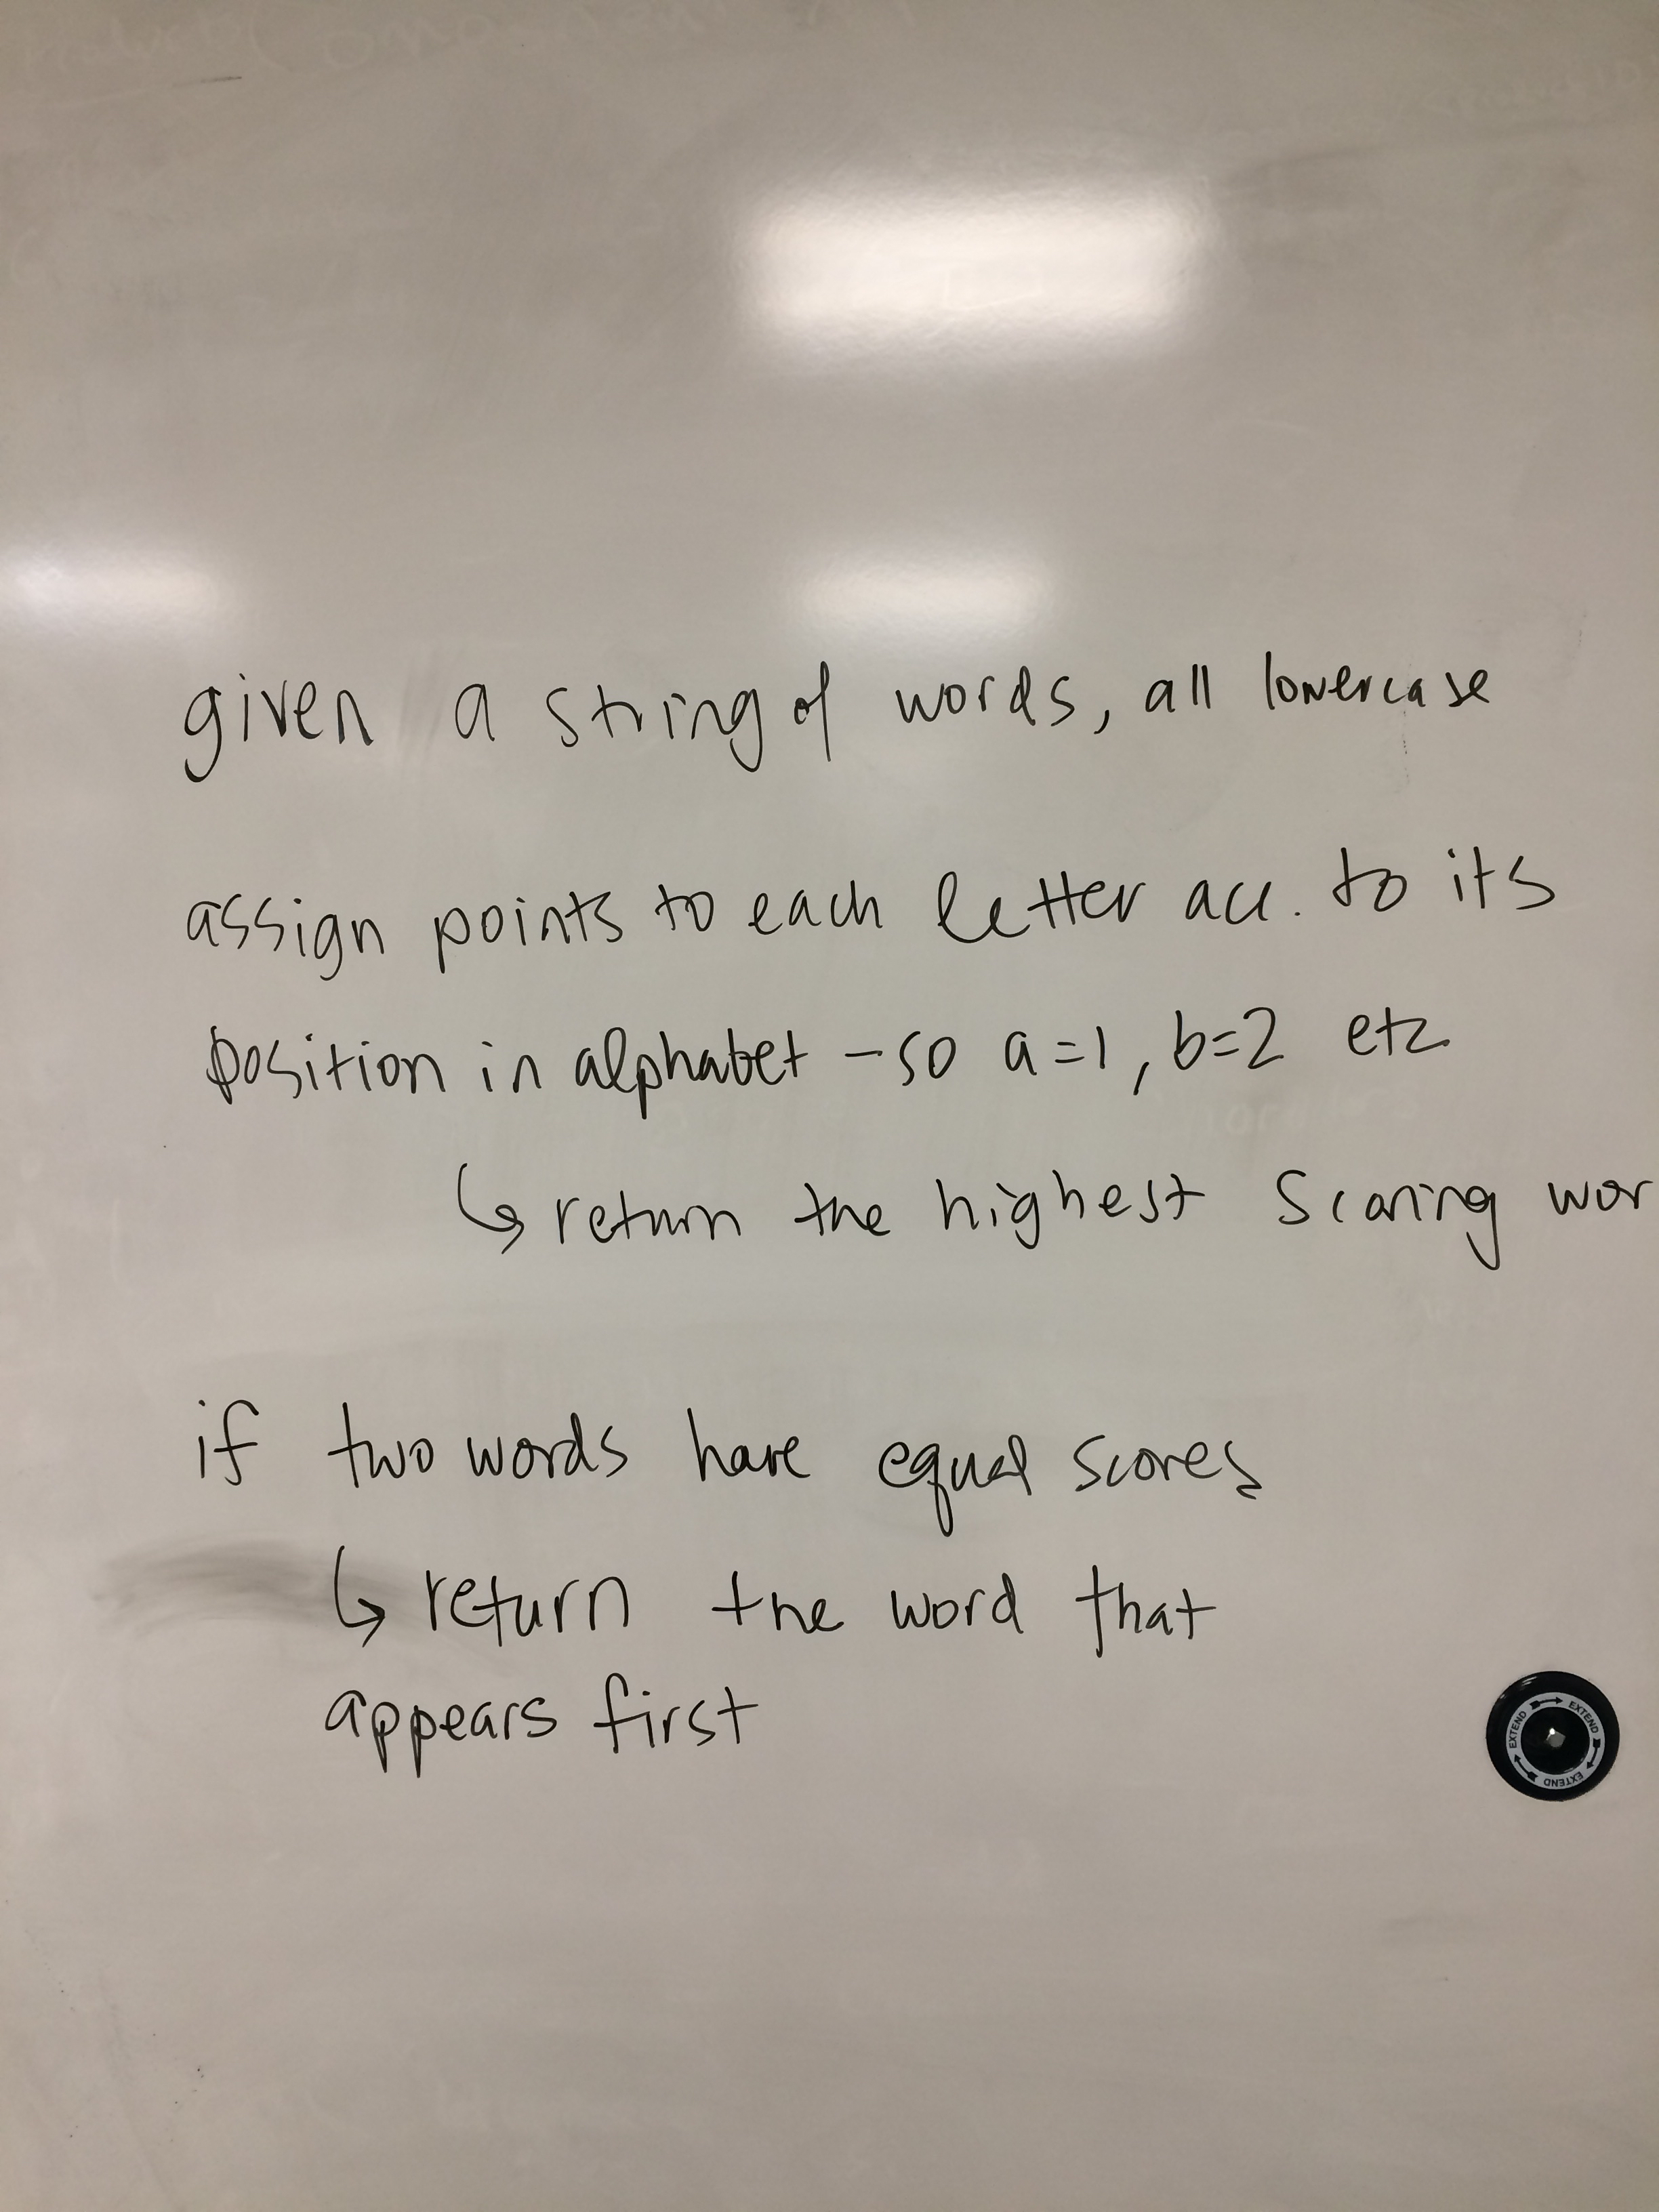 given a string of words, all lowercase
assign points to each letter acc. to its
position in alphabet - so a=1, b=2 etc
↳ return the highest scoring wor
if two words have equal scores
↳ return the word that
appears first
EXTEND EXTEND EXTEND EXTEND